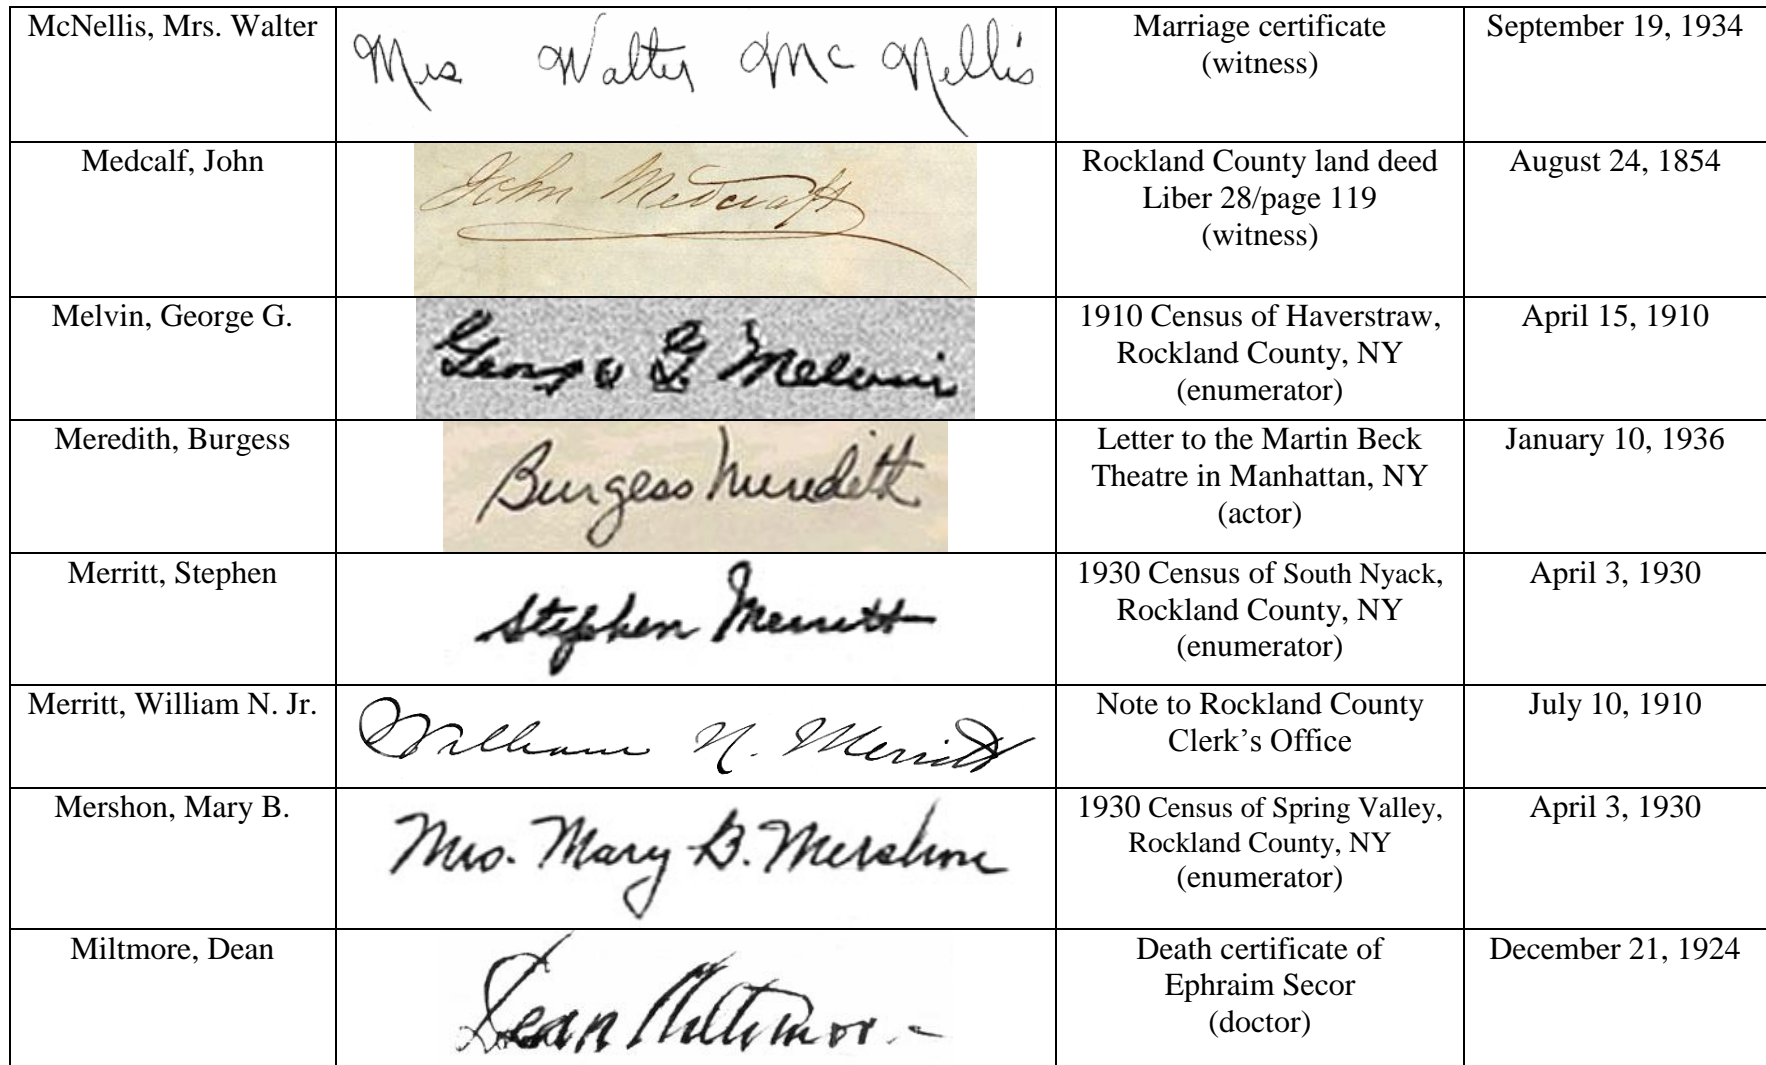 McNellis, Mrs. Walter
Mrs Walter McNellis
Marriage certificate
(witness)
September 19, 1934
Medcalf, John
John Medcraft
Rockland County land deed
Liber 28/page 119
(witness)
August 24, 1854
Melvin, George G.
George G Melvin
1910 Census of Haverstraw,
Rockland County, NY
(enumerator)
April 15, 1910
Meredith, Burgess
Burgess Meredith
Letter to the Martin Beck
Theatre in Manhattan, NY
(actor)
January 10, 1936
Merritt, Stephen
Stephen Merritt
1930 Census of South Nyack,
Rockland County, NY
(enumerator)
April 3, 1930
Merritt, William N. Jr.
William N. Merritt
Note to Rockland County
Clerk’s Office
July 10, 1910
Mershon, Mary B.
Mrs. Mary B. Mershon
1930 Census of Spring Valley,
Rockland County, NY
(enumerator)
April 3, 1930
Miltmore, Dean
Dean Miltimore
Death certificate of
Ephraim Secor
(doctor)
December 21, 1924